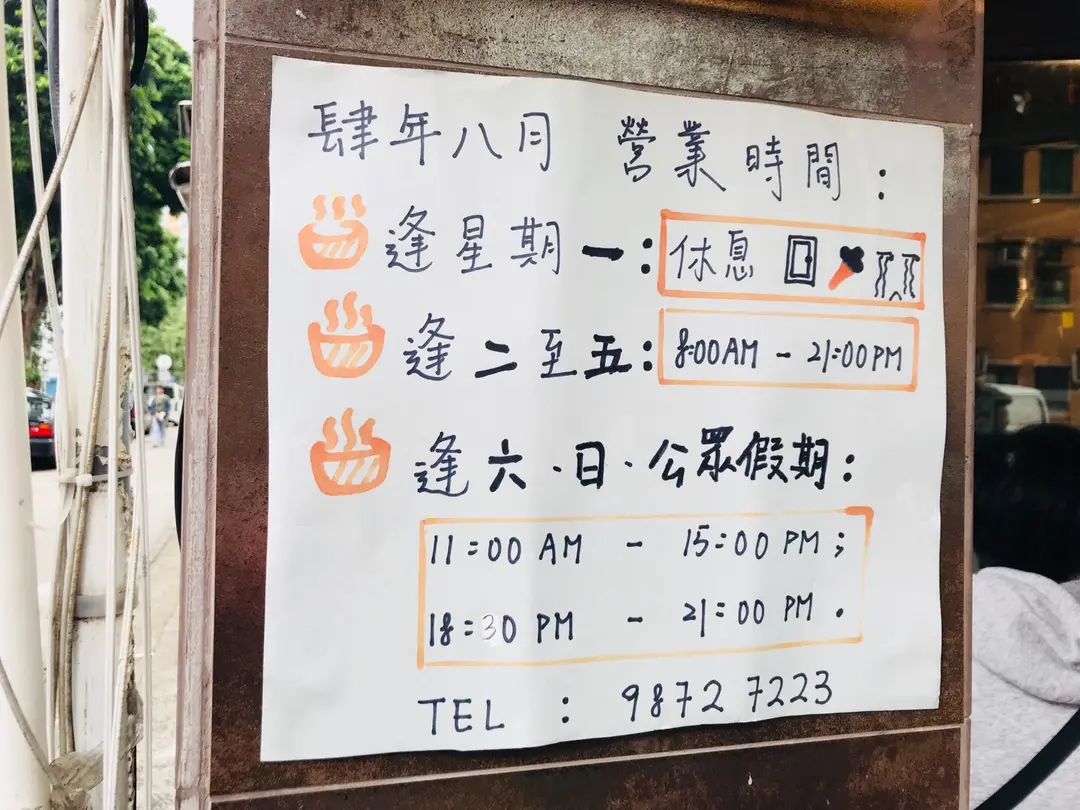 肆年八月 營業時間:
逢星期一:休息
逢二至五:8:00AM - 21:00PM
逢六·日·公眾假期:
11:00 AM - 15:00 PM;
18:30 PM - 21:00 PM.
TEL : 9872 7223